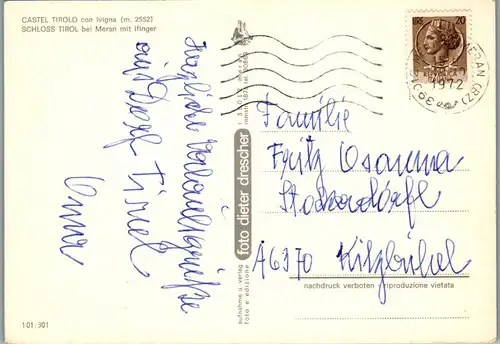 CASTEL TIROLO con Ivigna (m. 2552)
SCHLOSS TIROL bei Meran mit Ifinger
Herzliche Urlaubsgrüße
aus Dorf Tirol
foto dieter drescher
aufnahme u. verlag
foto e edizione
LIRE 20
MERAN (BZ)
1972
39012
Familie
Fritz Osanna
A6370 Kitzbühel
nachdruck verboten riproduzione vietata
101/301